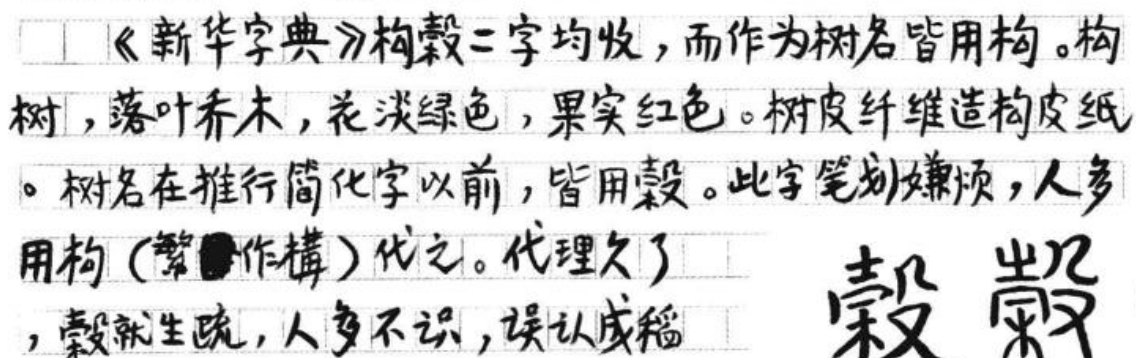 《新华字典》构榖二字均收，而作为树名皆用构。构
树，落叶乔木，花淡绿色，果实红色。树皮纤维造构皮纸
。树名在推行简化字以前，皆用榖。此字笔划嫌烦，人多
用构（繁作構）代之。代理久了
，榖就生疏，人多不识，误认成稻
榖